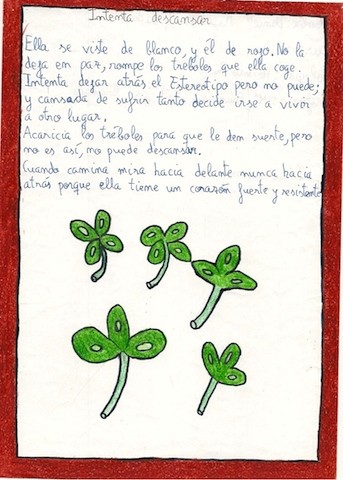 Intenta descansar
Ella se viste de blanco, y él de rojo. No la
deja en paz, rompe los treboles que ella coge.
Intenta dejar atrás el Estereotipo pero no puede;
y cansada de sufrir tanto decide irse a vivir
a otro lugar.
Acaricia los tréboles para que le den suerte, pero
no es así, no puede descansar.
Cuando camina mira hacia delante nunca hacia
atrás porque ella tiene un corazón fuerte y resistente